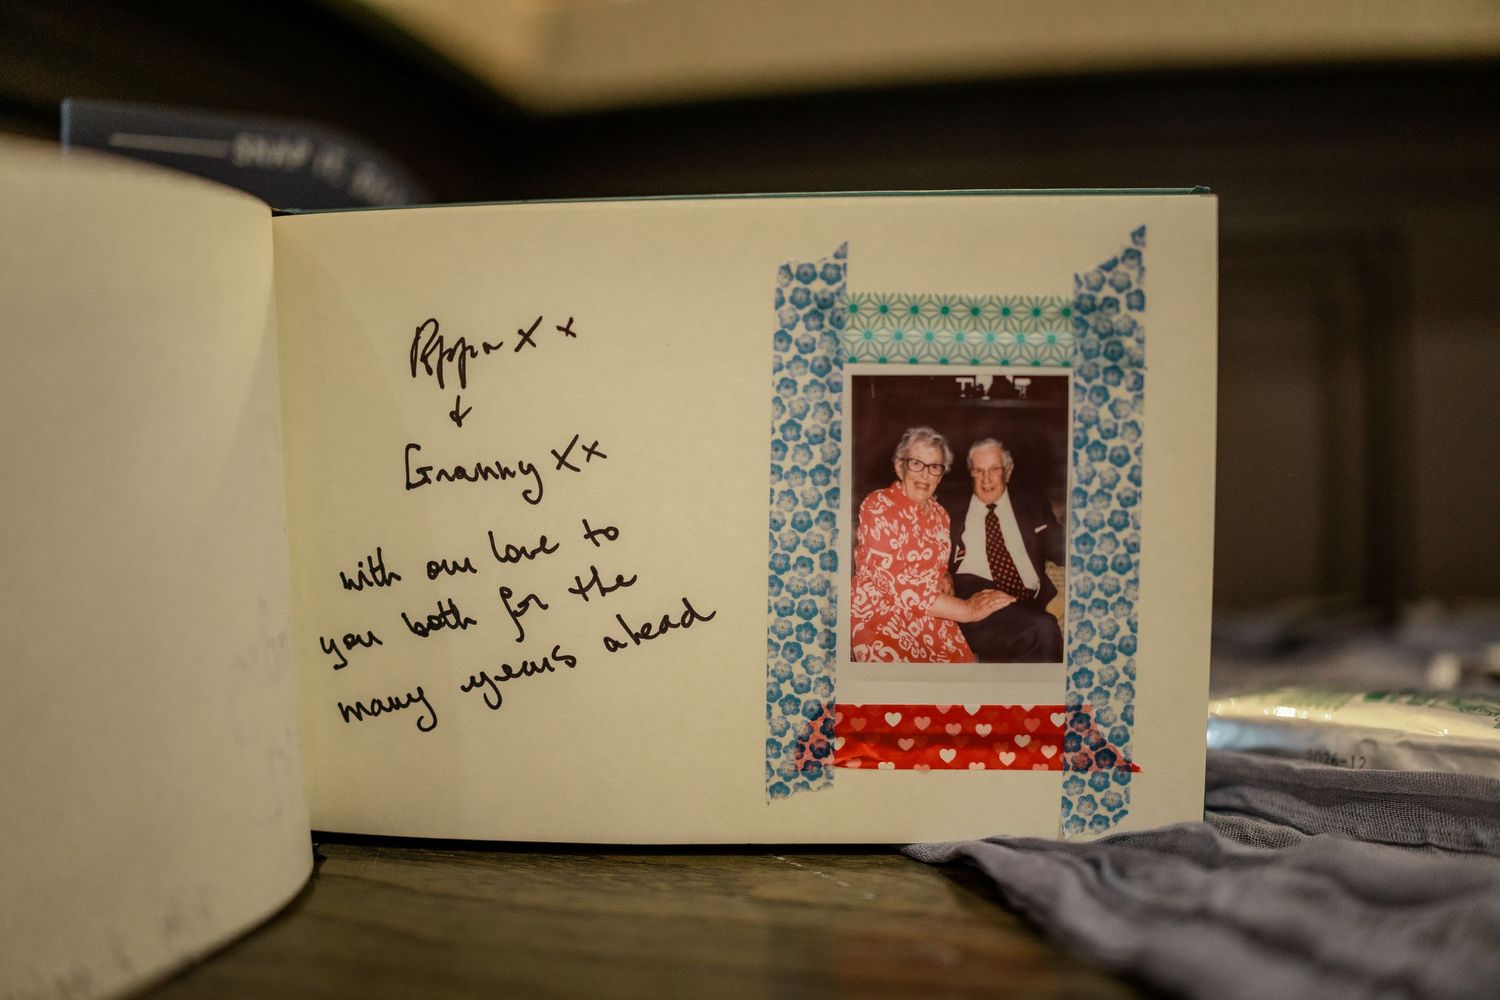 SNAP IT,
Poppa X x
&
Granny Xx
with our love to
you both for the
many years ahead
2026-12